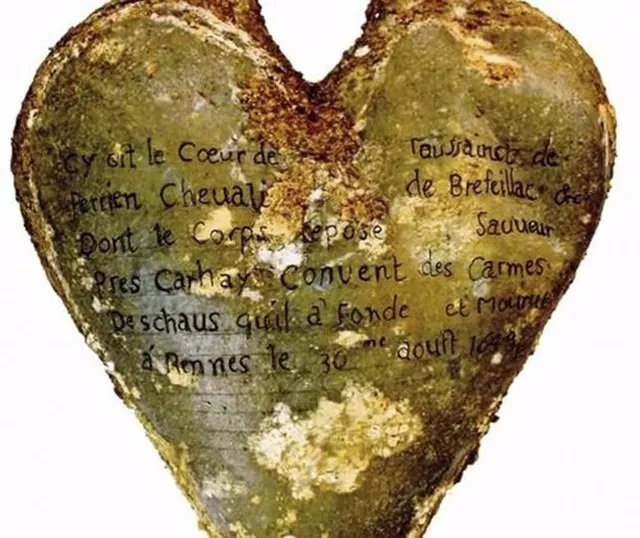 Cy git le Cœur de Toussainct de
Perrien Cheuali de Brefeillac
Dont le Corps repose Sauveur
Pres Carhay Convent des Carmes
Deschaus quil a Fondé et Mourut
á Rennes le 30me aoust